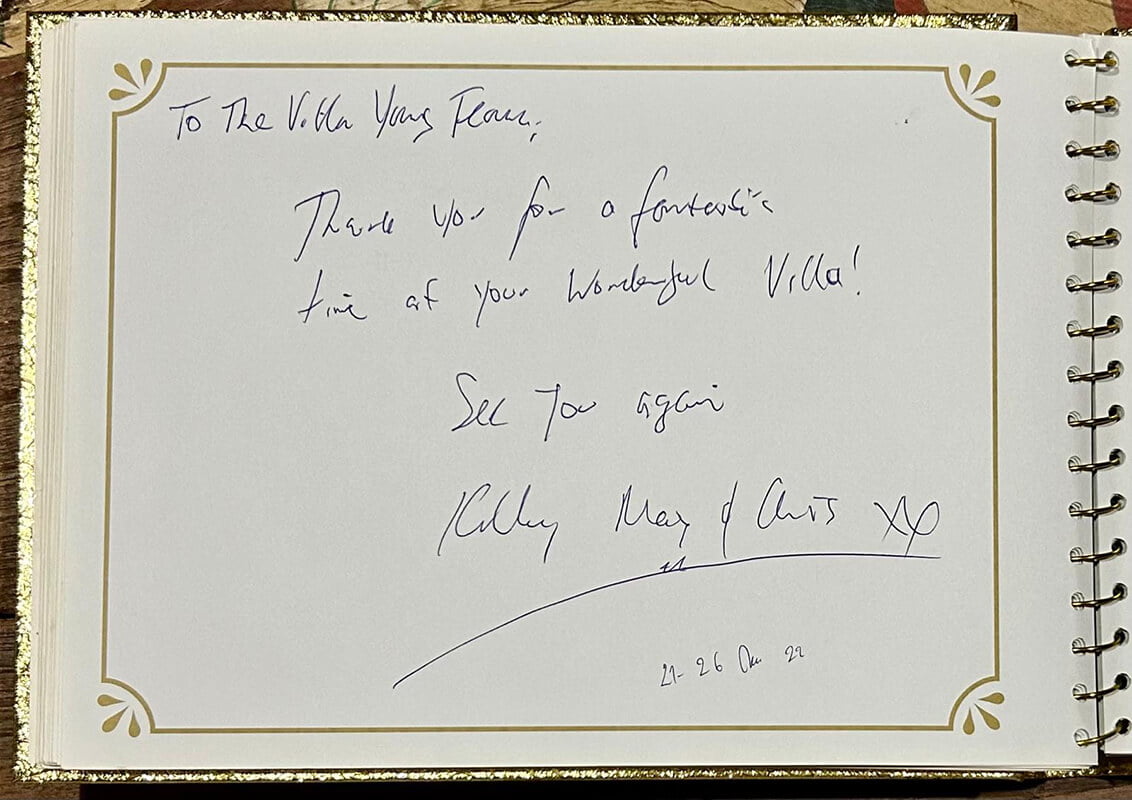 To The Villa Young Team,
Thank you for a fantastic
time at your Wonderful Villa!
See You again
May & Chris XX
21-26 22